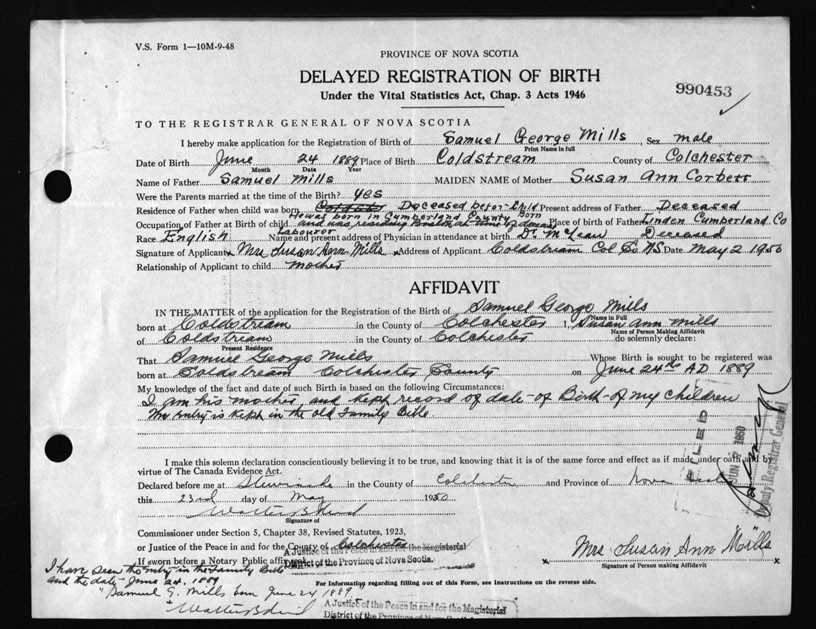 V.S. Form 1—10M-9-48
PROVINCE OF NOVA SCOTIA
DELAYED REGISTRATION OF BIRTH
990453
Under the Vital Statistics Act, Chap. 3 Acts 1946
TO THE REGISTRAR GENERAL OF NOVA SCOTIA
I hereby make application for the Registration of Birth of Samuel George Mills, Sex male
Print Name in full
Date of Birth June 24 1889 Place of Birth Coldstream County of Colchester
Month Date Year
Name of Father Samuel Mills MAIDEN NAME of Mother Susan Ann Corbett
Were the Parents married at the time of the Birth? yes
Residence of Father when child was born Deceased before child Present address of Father Deceased
He was born in Cumberland County Born
Occupation of Father at Birth of child and was residing at time of Place of birth of Father Linden Cumberland Co
Labourer
Race English Name and present address of Physician in attendance at birth Dr McLean Deceased
Signature of Applicant x Mrs Susan Ann Mills x Address of Applicant Coldstream Col Co N.S. Date May 2 1950
Relationship of Applicant to child mother
AFFIDAVIT
IN THE MATTER of the application for the Registration of the Birth of Samuel George Mills
Name in Full
born at Coldstream in the County of Colchester, I, Susan Ann Mills
Name of Person Making Affidavit
of Coldstream in the County of Colchester do solemnly declare:
Present Residence
That Samuel George Mills Whose Birth is sought to be registered was
born at Coldstream Colchester County on June 24th AD 1889
My knowledge of the fact and date of such Birth is based on the following Circumstances:
I am his mother, and kept record of date of Birth of my children
The Entry is Kept in the old Family Bible
FILED
JUN 1950
Deputy Registrar General
I make this solemn declaration conscientiously believing it to be true, and knowing that it is of the same force and effect as if made under oath and by
virtue of The Canada Evidence Act.
Declared before me at Stewiacke in the County of Colchester and Province of Nova Scotia
this 23rd day of May 1950
Signature of
Commissioner under Section 5, Chapter 38, Revised Statutes, 1923,
or Justice of the Peace in and for the County of Colchester
A Justice of the Peace in and for the Magisterial
District of the Province of Nova Scotia.
If sworn before a Notary Public affix
x Mrs Susan Ann Mills x
Signature of Person making Affidavit
I have seen the entry in the Family Bible
and the date June 24, 1889
For Information regarding filling out of this Form, see instructions on the reverse side.
"Samuel G. Mills born June 24 1889"
A Justice of the Peace in and for the Magisterial
District of the Province of Nova